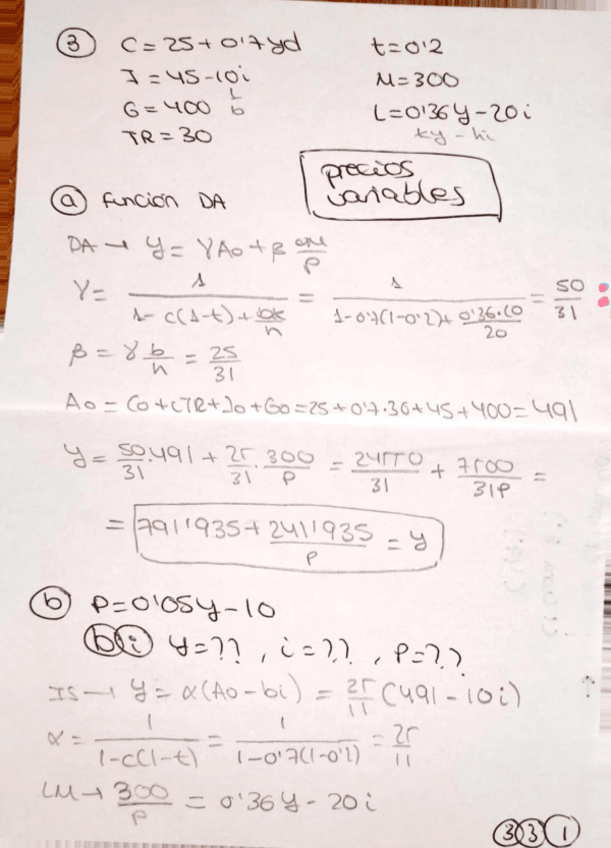 ③ C = 25 + 0'7yd t = 0'2
I = 45 - 10i M = 300
G = 400 b L = 0'36y - 20i
TR = 30 ky - hi
precios
variables
ⓐ función DA
DA → y = γAo + β M/P
γ = 1/(1 - c(1-t) + bk/h) = 1/(1 - 0'7(1-0'2) + 0'36·10/20) = 50/31
β = γ b/h = 25/31
Ao = Co + cTR + Io + Go = 25 + 0'7·30 + 45 + 400 = 491
y = 50/31·491 + 25/31·300/P = 24550/31 + 7500/31P =
= 791'1935 + 241'1935/P = y
ⓑ P = 0'05y - 10
ⓑⓘ y = ??, i = ??, P = ??
IS → y = α(Ao - bi) = 25/11 (491 - 10i)
α = 1/(1-c(1-t)) = 1/(1-0'7(1-0'2)) = 25/11
LM → 300/P = 0'36y - 20i
③③①